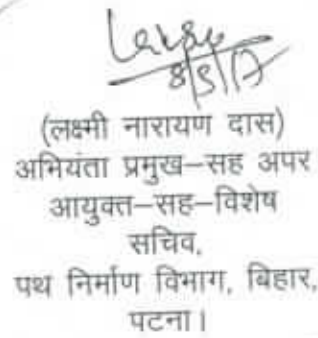 8/5/17
(लक्ष्मी नारायण दास)
अभियंता प्रमुख–सह अपर
आयुक्त–सह–विशेष
सचिव,
पथ निर्माण विभाग, बिहार,
पटना।